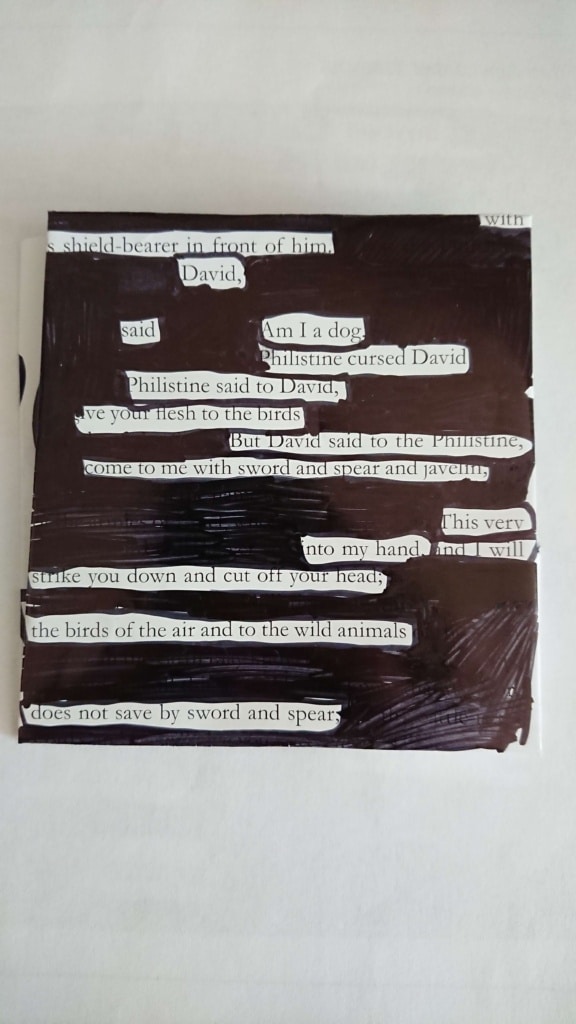 with
s shield-bearer in front of him.
David,
said Am I a dog,
Philistine cursed David
Philistine said to David,
ive your flesh to the birds
But David said to the Philistine,
come to me with sword and spear and javelin,
This very
into my hand, and I will
strike you down and cut off your head;
the birds of the air and to the wild animals
does not save by sword and spear;